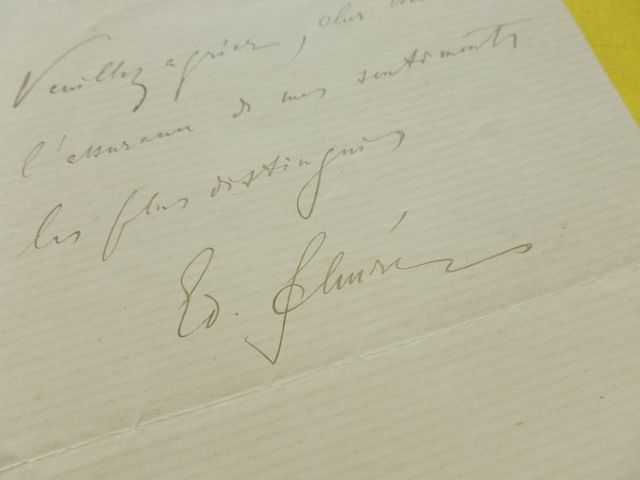 Veuillez agréer, cher
l'assurance de mes sentiments
les plus distingués
Ed. Schuré